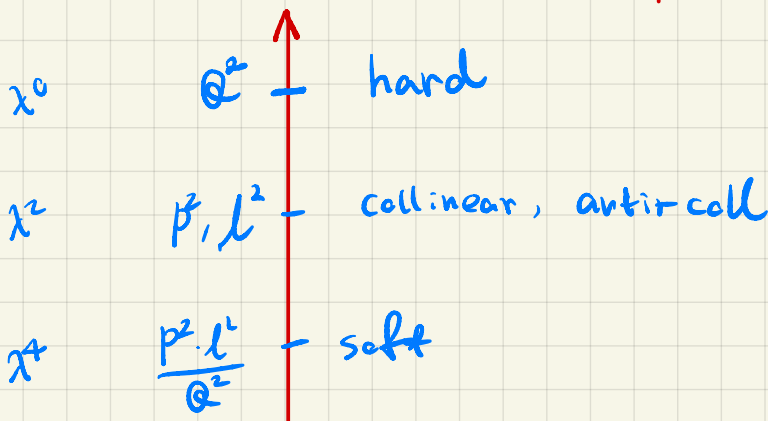 λ⁰ Q² hard
λ² p², l² collinear, anti-coll
λ⁴ p²·l²/Q² soft